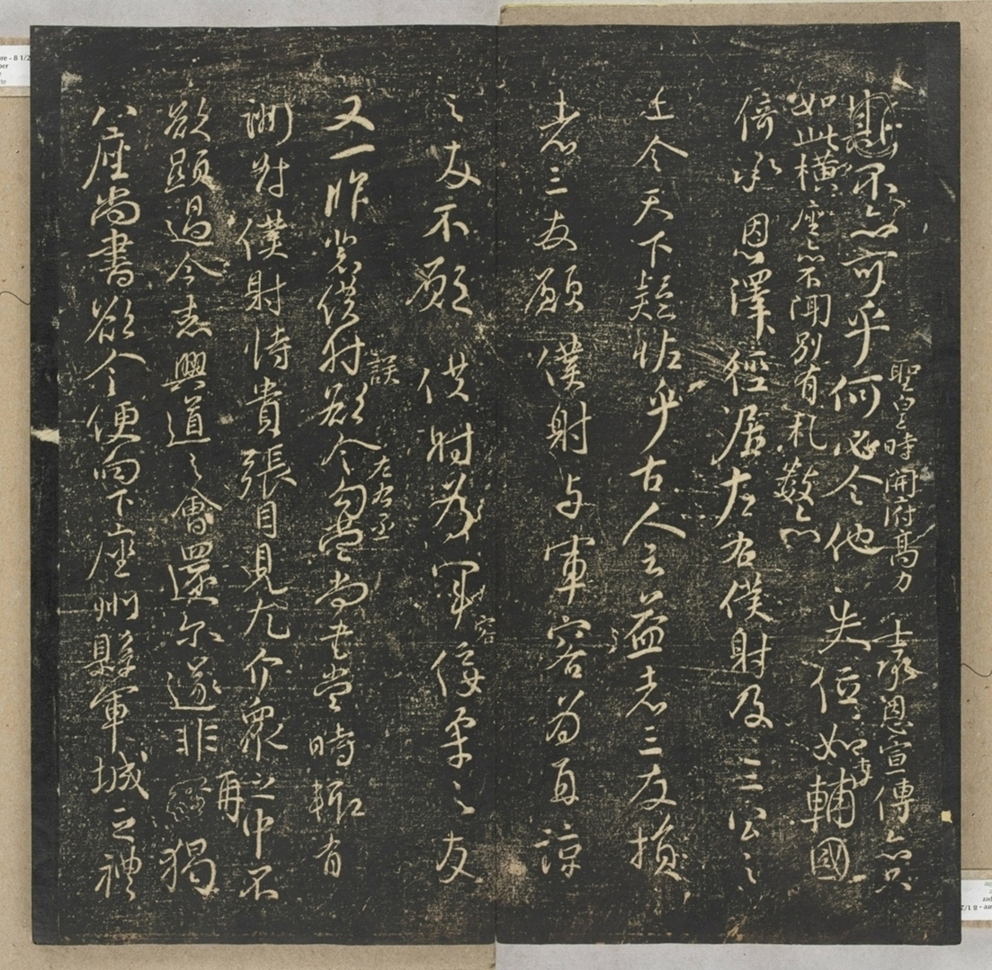 聖皇時開府高力士承恩宣傳亦只
懸不亦可乎何必令他失位如李輔國
如此橫座亦不聞別有礼數亦
倚承恩澤徑居左右僕射及三公之
上令天下疑怪乎古人云益者三友損
者三友願僕射与軍容為直諒
之友不願僕射為軍容佞柔之友
又一昨裴僕射誤欲令左右丞勾當尚書當時輒有
酬對僕射恃貴張目見尤介衆之中不
欲顯過今者興道之會還尔遂非再猲
八座尚書欲令便向下座州縣軍城之禮